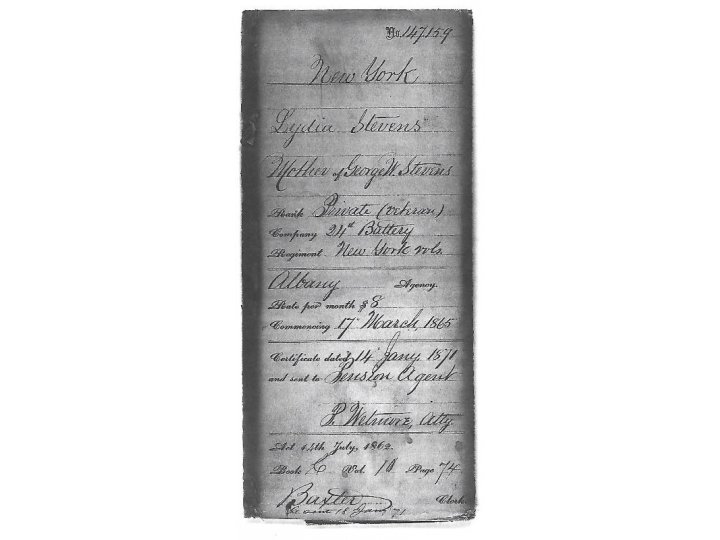 No. 147159
New York
Lydia Stevens
Mother of George W. Stevens
Rank Private (veteran)
Company 24th Battery
Regiment New York vols.
Albany Agency.
Rate per month $8
Commencing 17 March, 1865
Certificate dated 14 Jany 1871
and sent to Pension Agent
P. Wetmore, Atty.
Act 14th July, 1862.
Book Vol. 10 Page 74
Baxter Clerk.
sent 18 Jany 71